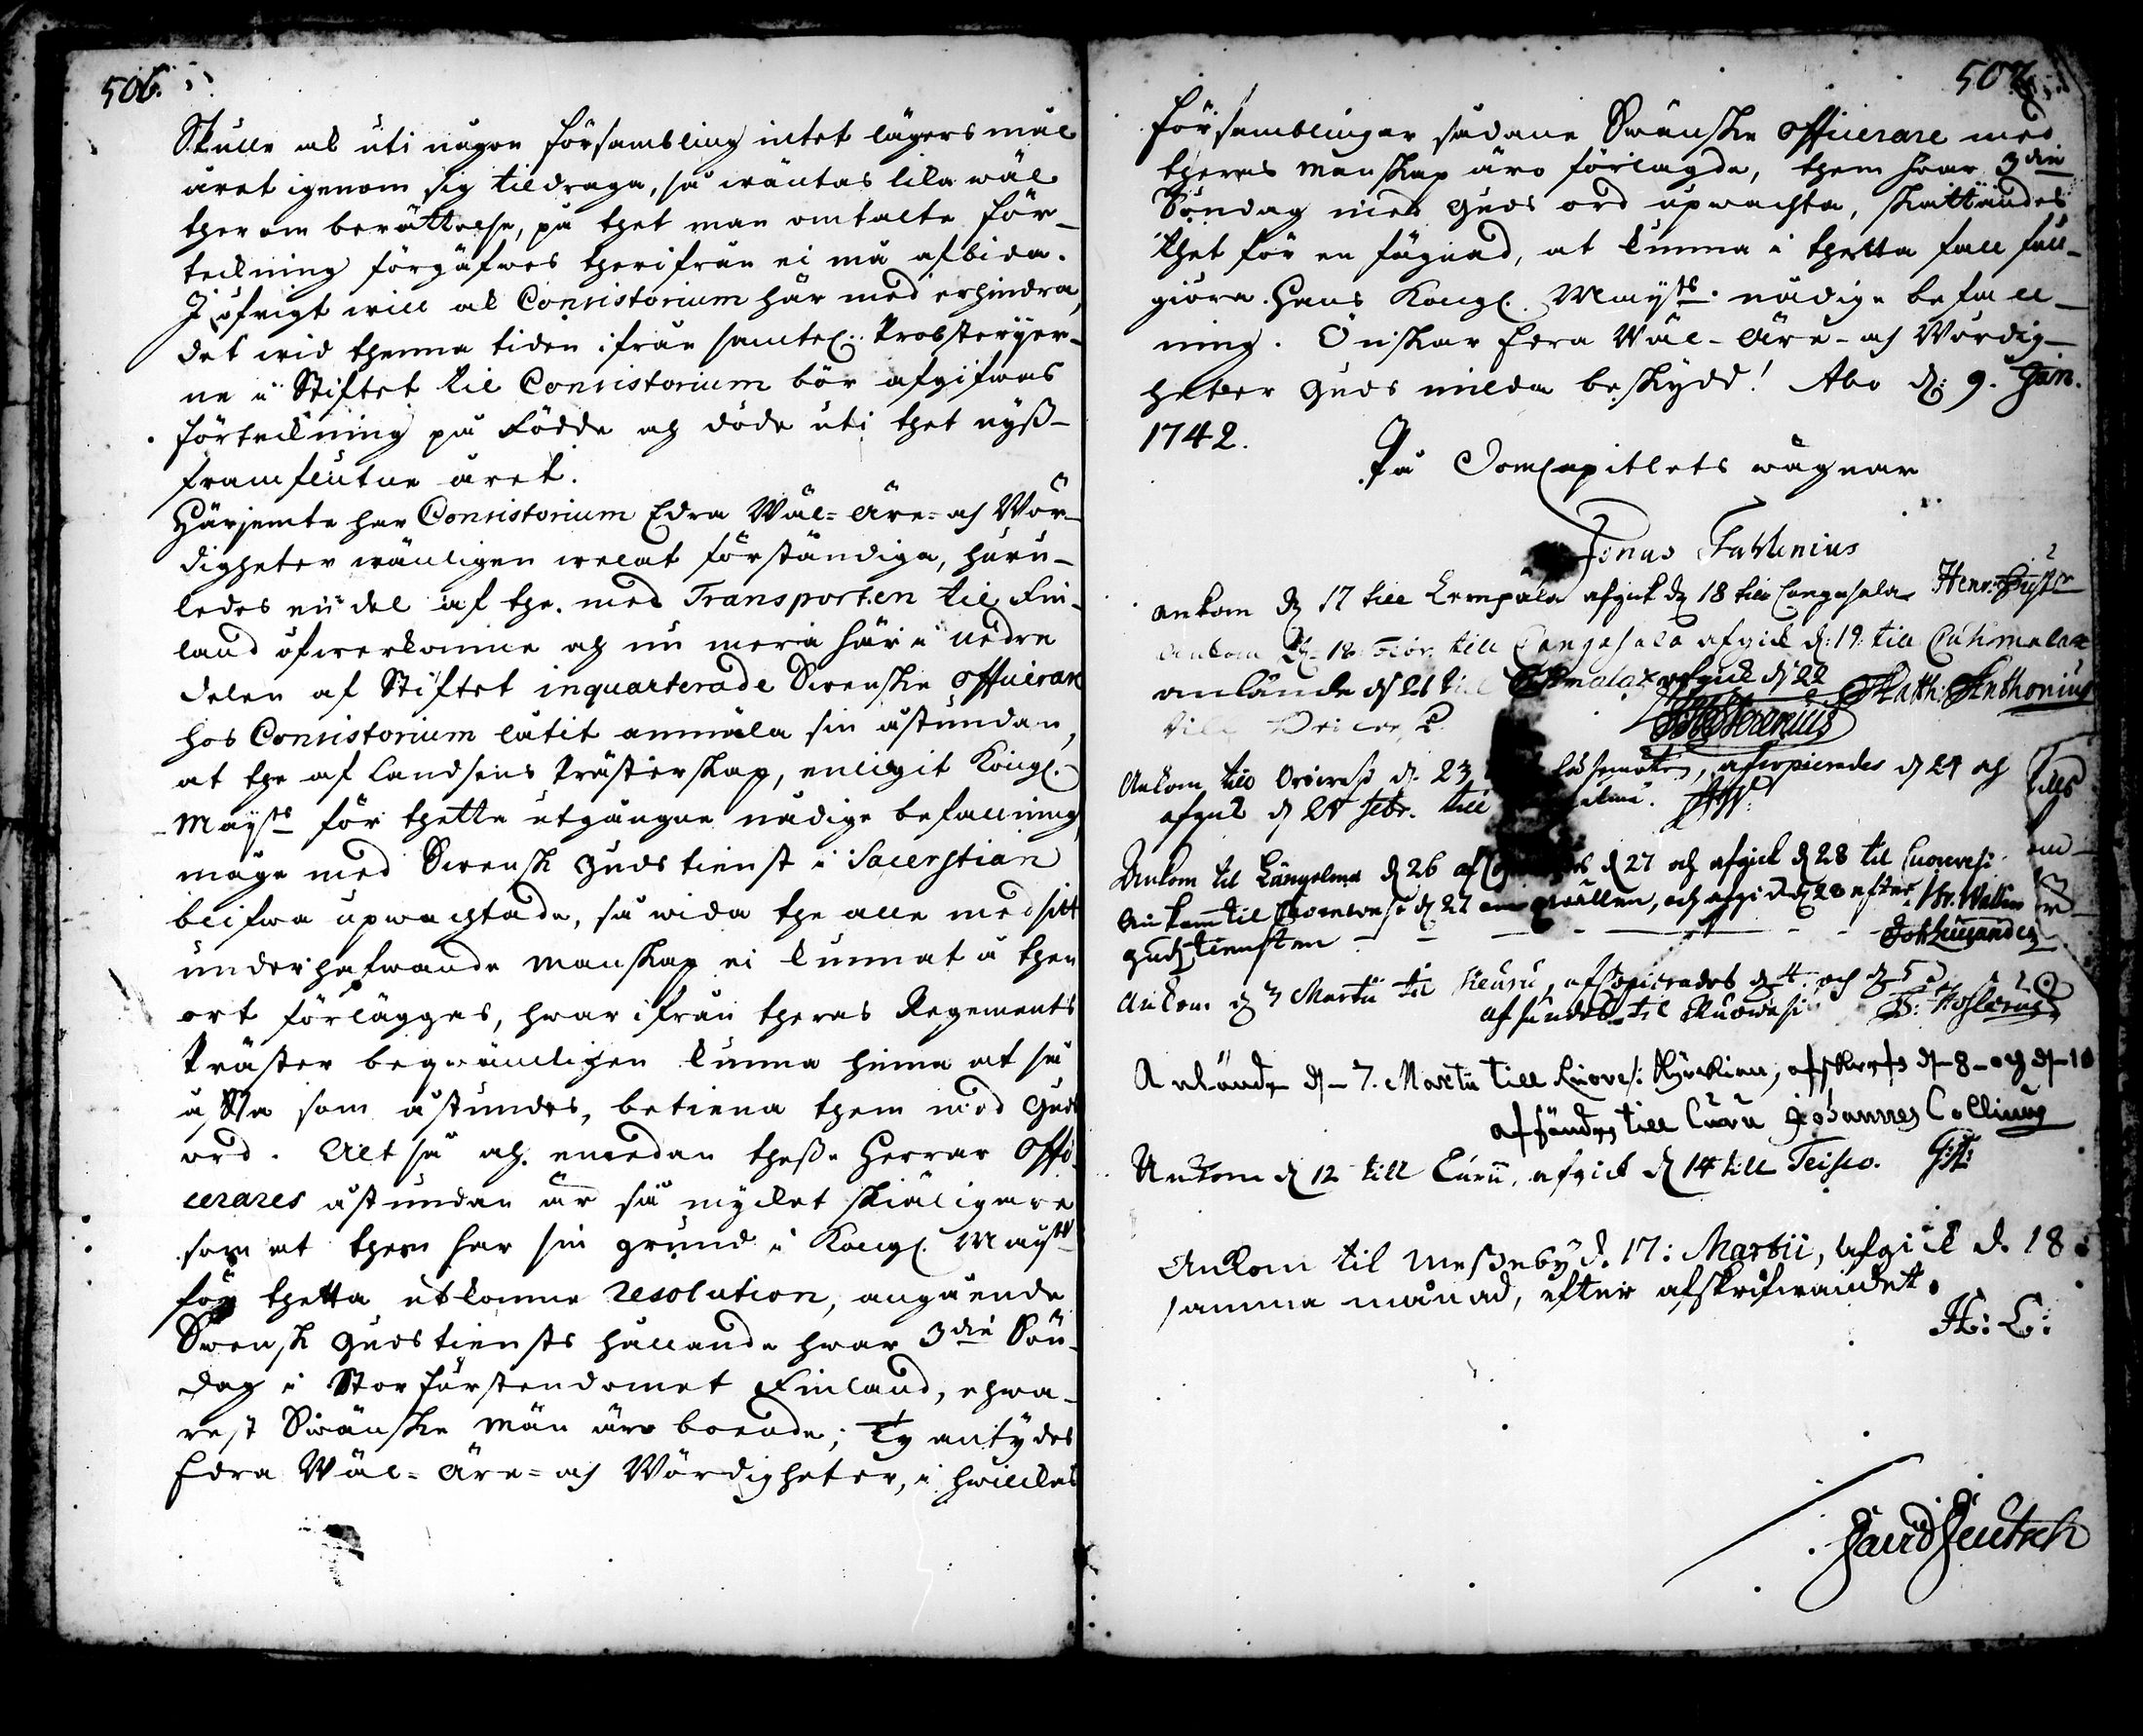 506.
Skulle ock uti någon försambling intet lägersmål
året igenom sig tildraga, så wäntas lila wäl
therom berättelse, på thet man omtalte för-
tekning förgäfwes therifrån ei må afbida.
I öfrigt will ock Consistorium här med erhindra,
det wid thenna tiden ifrån samtel. Probsterijer-
ne i Stiftet til Consistorium bör afgifwas
förtekning på Födde och döde uti thet nyß-
framflutne året.
Härjemte har Consistorium Edra Wäl- Äre- och Wör-
digheter wänligen welat förständiga, huru-
ledes en del af the med Transporten til Fin-
land öfwerkomne och nu mera här i nedre
delen af Stiftet inquarterade Swenske officerare
hos Consistorium låtit anmäla sin åstundan,
at the af Landsens Prästerskap, enligit Kongl.
Mayts för thetta utgångne nådige befallning
måge med Swensk gudstienst i Sacerstian
blifwa upwachtade, så wida the alle med sitt
underhafwande manskap ei kunnat å then
ort förläggas, hwarifrån theras Regements
Präster beqwämligen kunna hinna at så
offta som åstundes, betiena them med Guds
ord. Alt så och emedan theße Herrar Offi-
cerares åstundan är så mycket skiäligare
som at them har sin grund i Kongl. Mayts
för thetta utkomne resolution, angående
Swensk gudstiensts hållande hwar 3die Sön-
dag i Storfurstendömet Finland, ehwa-
rest Swänske män äro boende; Ty antydes
Edra Wäl- Äre- och Wördigheter, i hwilkas
507.
församblingar sådane Swänske officerare med
theras manskap äro förlagde, them hwar 3die
Söndag med Guds ord upwachta, skattandes
thet för en fägnad, at kunna i thetta fall full-
giöra Hans Kongl. Mayts nådige befall-
ning. Önskar Edra Wäl- Äre- och Wördig-
heter Guds milda beskydd! Abo d. 9. Jan.
1742.
På Domcapitlets wägnar
Jonas Fahlenius
ankom d 17 till Lempälä afgick d 18 till Cangasala Henr:
ankom d. 18 till Cangasala afgick d. 19. till Cuhmalax
anlände d 21 till afgick d 22 Matth: Anthonius
till
Ankom till Oriwesi d. 23 afcopierades d 24 och
afgick d 24 febr. till
Ankom til Längelmä d 26 d 27 och afgick d 28 til Cuorewesi
Ankom til Cuorewesi d 27 om qwällen, och afgick d 28 efter
gudstiensten
Ankom d 3 Martii til Keuru, afcopierades d 4 och d 5
afsändes til Ruowesi
Anlände d 7. Martii till Ruovesi Kyrkian, afskrefs d 8 och d 10
afsändes till Curu Johannes Collinus
Ankom d 12 till Curu, afgick d 14 till Teisco.
Ankom til Meßuby d. 17: Martii, afgick d. 18
samma månad, efter afskrifwandet.
H: C:
David Deutsch